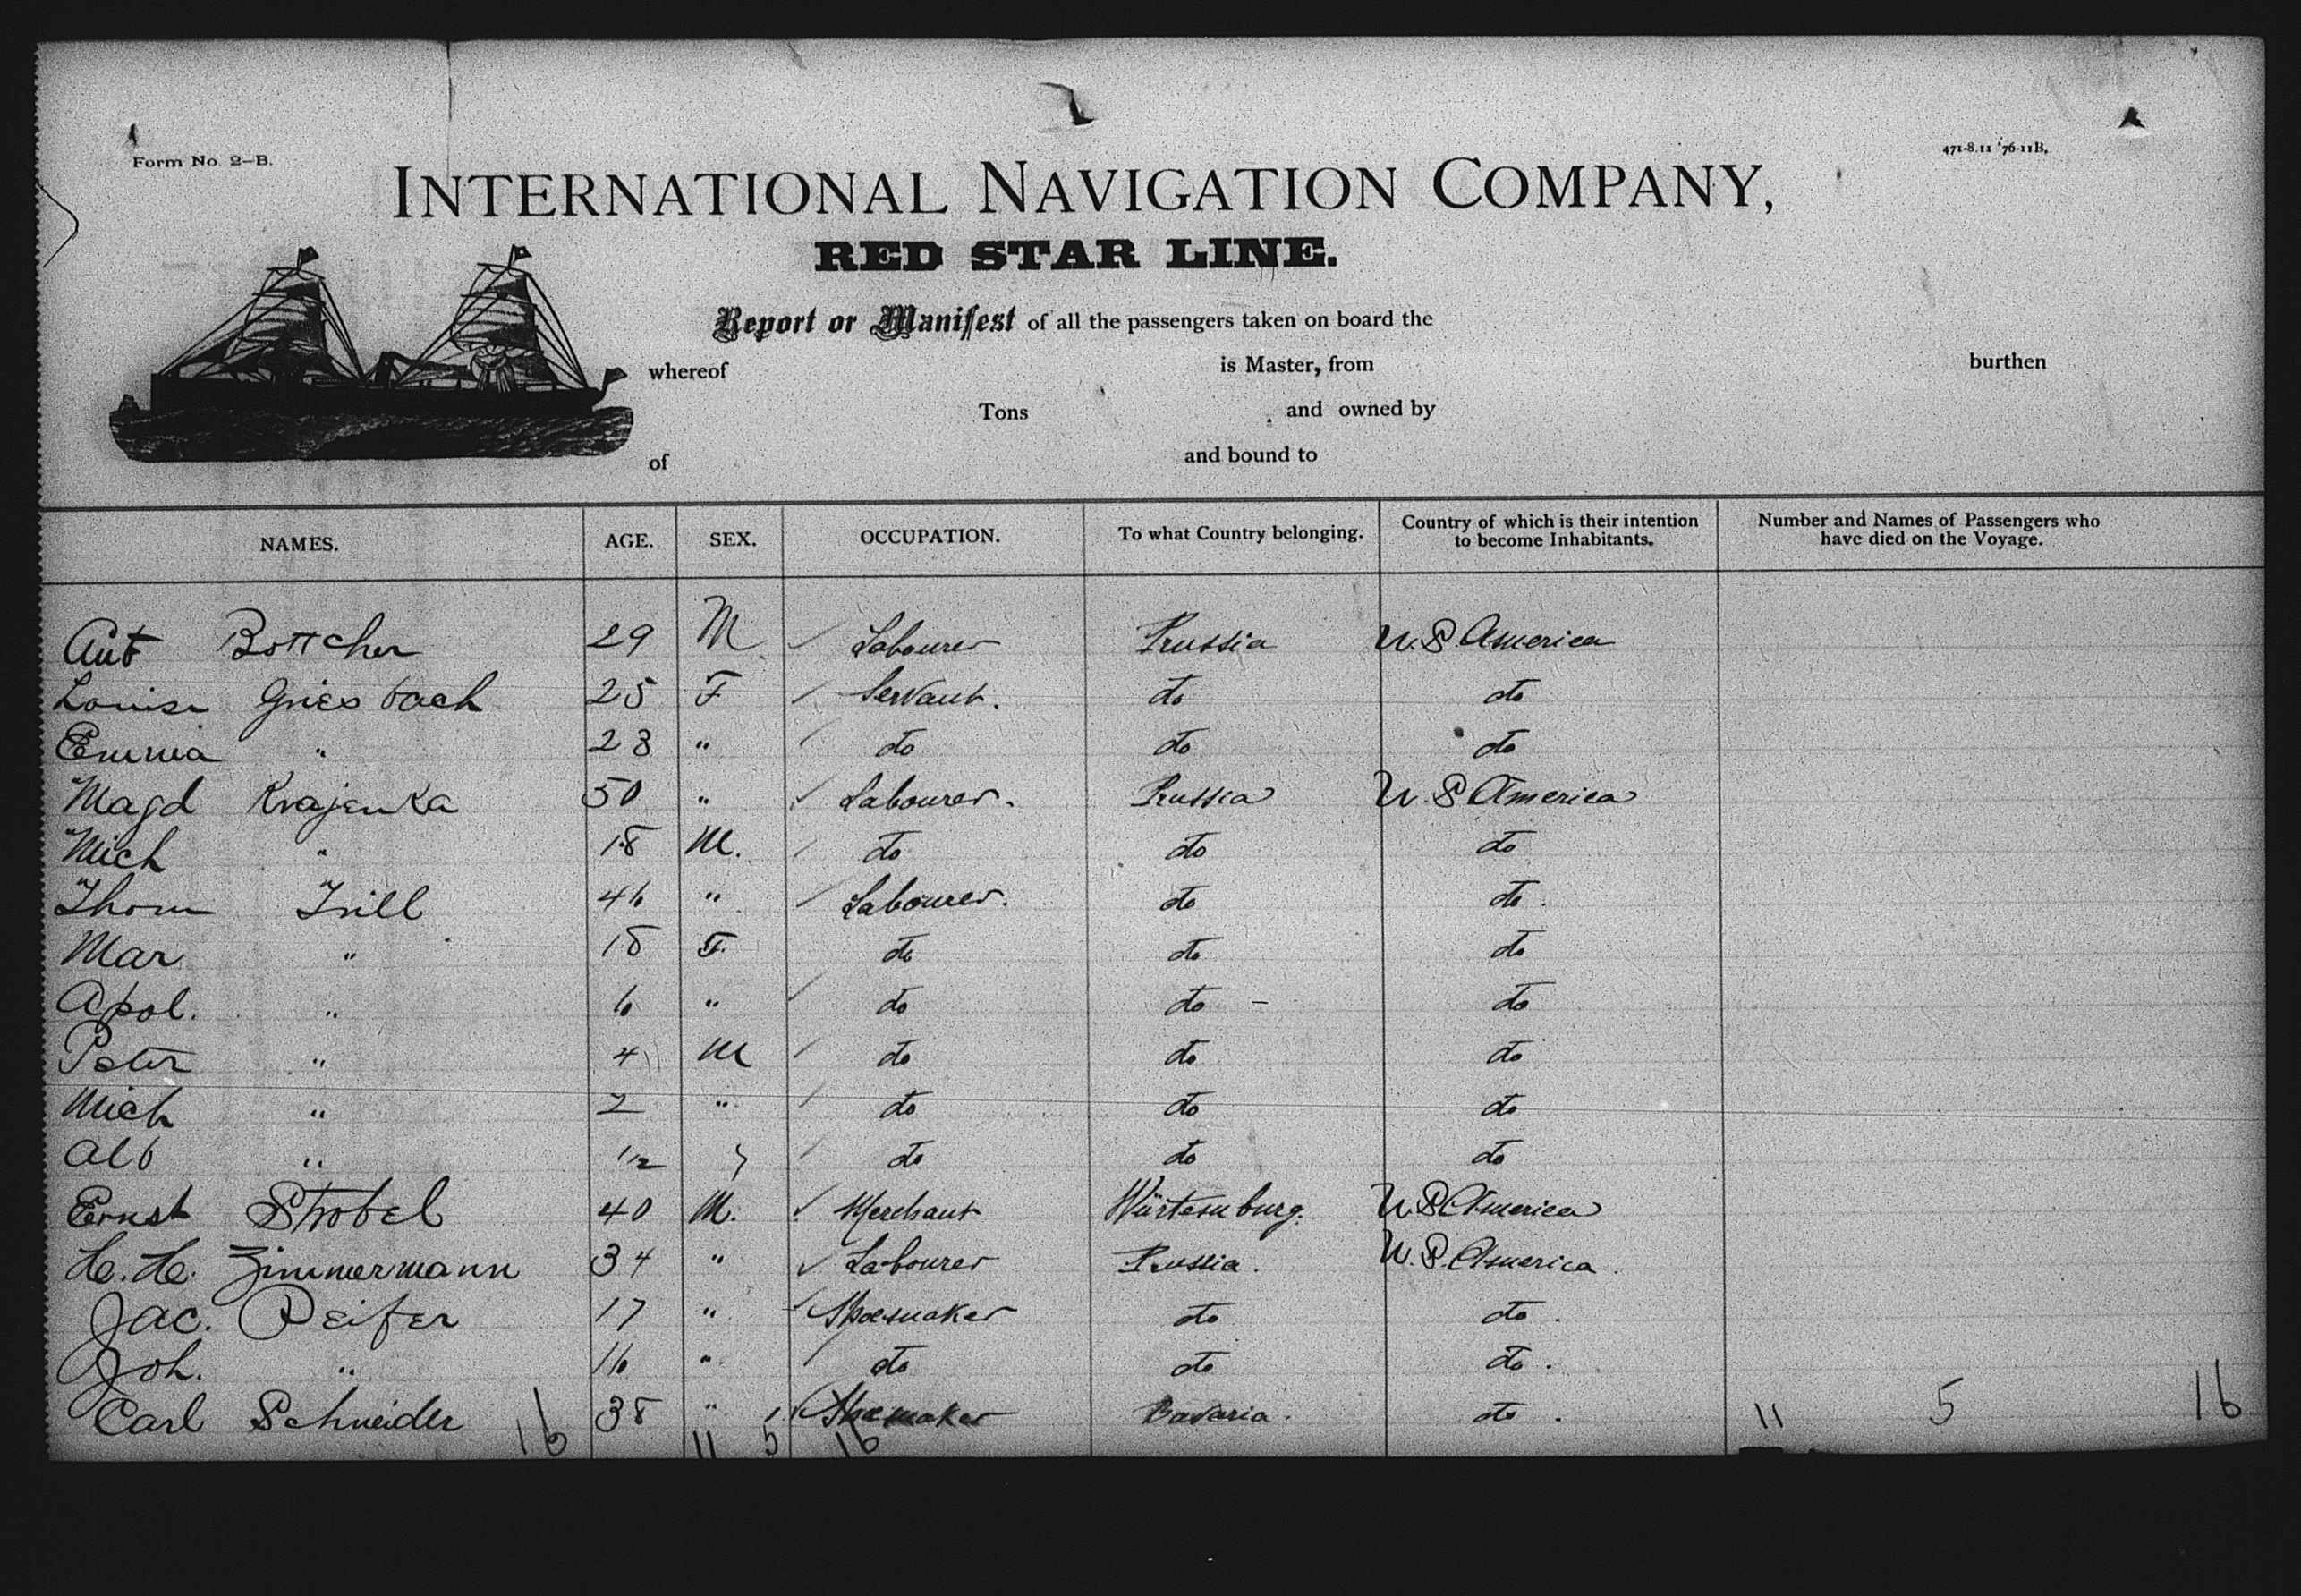 Form No. 2–B.
471-8.11 '76-11B.
INTERNATIONAL NAVIGATION COMPANY,
RED STAR LINE.
Report or Manifest of all the passengers taken on board the
whereof is Master, from burthen
Tons and owned by
of and bound to
NAMES. AGE. SEX. OCCUPATION. To what Country belonging. Country of which is their intention to become Inhabitants. Number and Names of Passengers who have died on the Voyage.
Ant Bottcher 29 M Labourer Prussia U.S. America
Louise Griesbach 25 F Servant. do do
Emma " 23 " do do do
Magd Krajenka 50 " Labourer. Prussia U.S America
Mich " 18 M. do do do
Thom Trill 46 " Labourer. do do.
Mar " 18 F. do do do
Apol. " 6 " do do - do
Peter " 4 M do do do
Mich " 2 " do do do
Alb " 1/2 do do do
Ernst Strobel 40 M. Merchant Würtemburg. U.S America
H. H. Zimmermann 34 " Labourer Prussia. U.S. America.
Jac. Peifer 17 " Shoemaker do do.
Joh. " 16 " do do do.
Carl Schneider 38 " Shoemaker Bavaria. do. 11 5 16
16 11 5 16